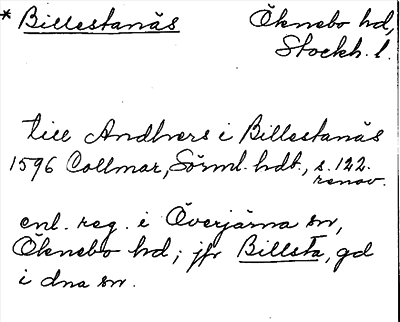 * Billestanäs Öknebo hd,
Stockh. l.
till Andhvers i Billestanäs
1596 Collmar, Sörml. hdl., s. 122.
renov.
enl. reg. i Överjärna sn,
Öknebo hd; jfr Billsta, gd
i dna sn.